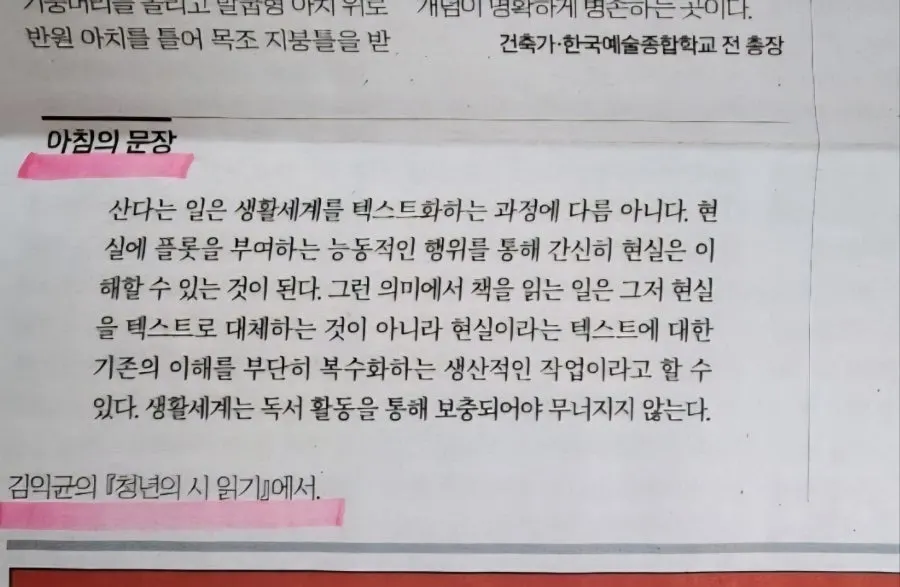 기둥머리를 올리고 말굽형 아치 위로
반원 아치를 틀어 목조 지붕틀을 받
개념이 명확하게 병존하는 곳이다.
건축가·한국예술종합학교 전 총장
아침의 문장
산다는 일은 생활세계를 텍스트화하는 과정에 다름 아니다. 현
실에 플롯을 부여하는 능동적인 행위를 통해 간신히 현실은 이
해할 수 있는 것이 된다. 그런 의미에서 책을 읽는 일은 그저 현실
을 텍스트로 대체하는 것이 아니라 현실이라는 텍스트에 대한
기존의 이해를 부단히 복수화하는 생산적인 작업이라고 할 수
있다. 생활세계는 독서 활동을 통해 보충되어야 무너지지 않는다.
김익균의 『청년의 시 읽기』에서.